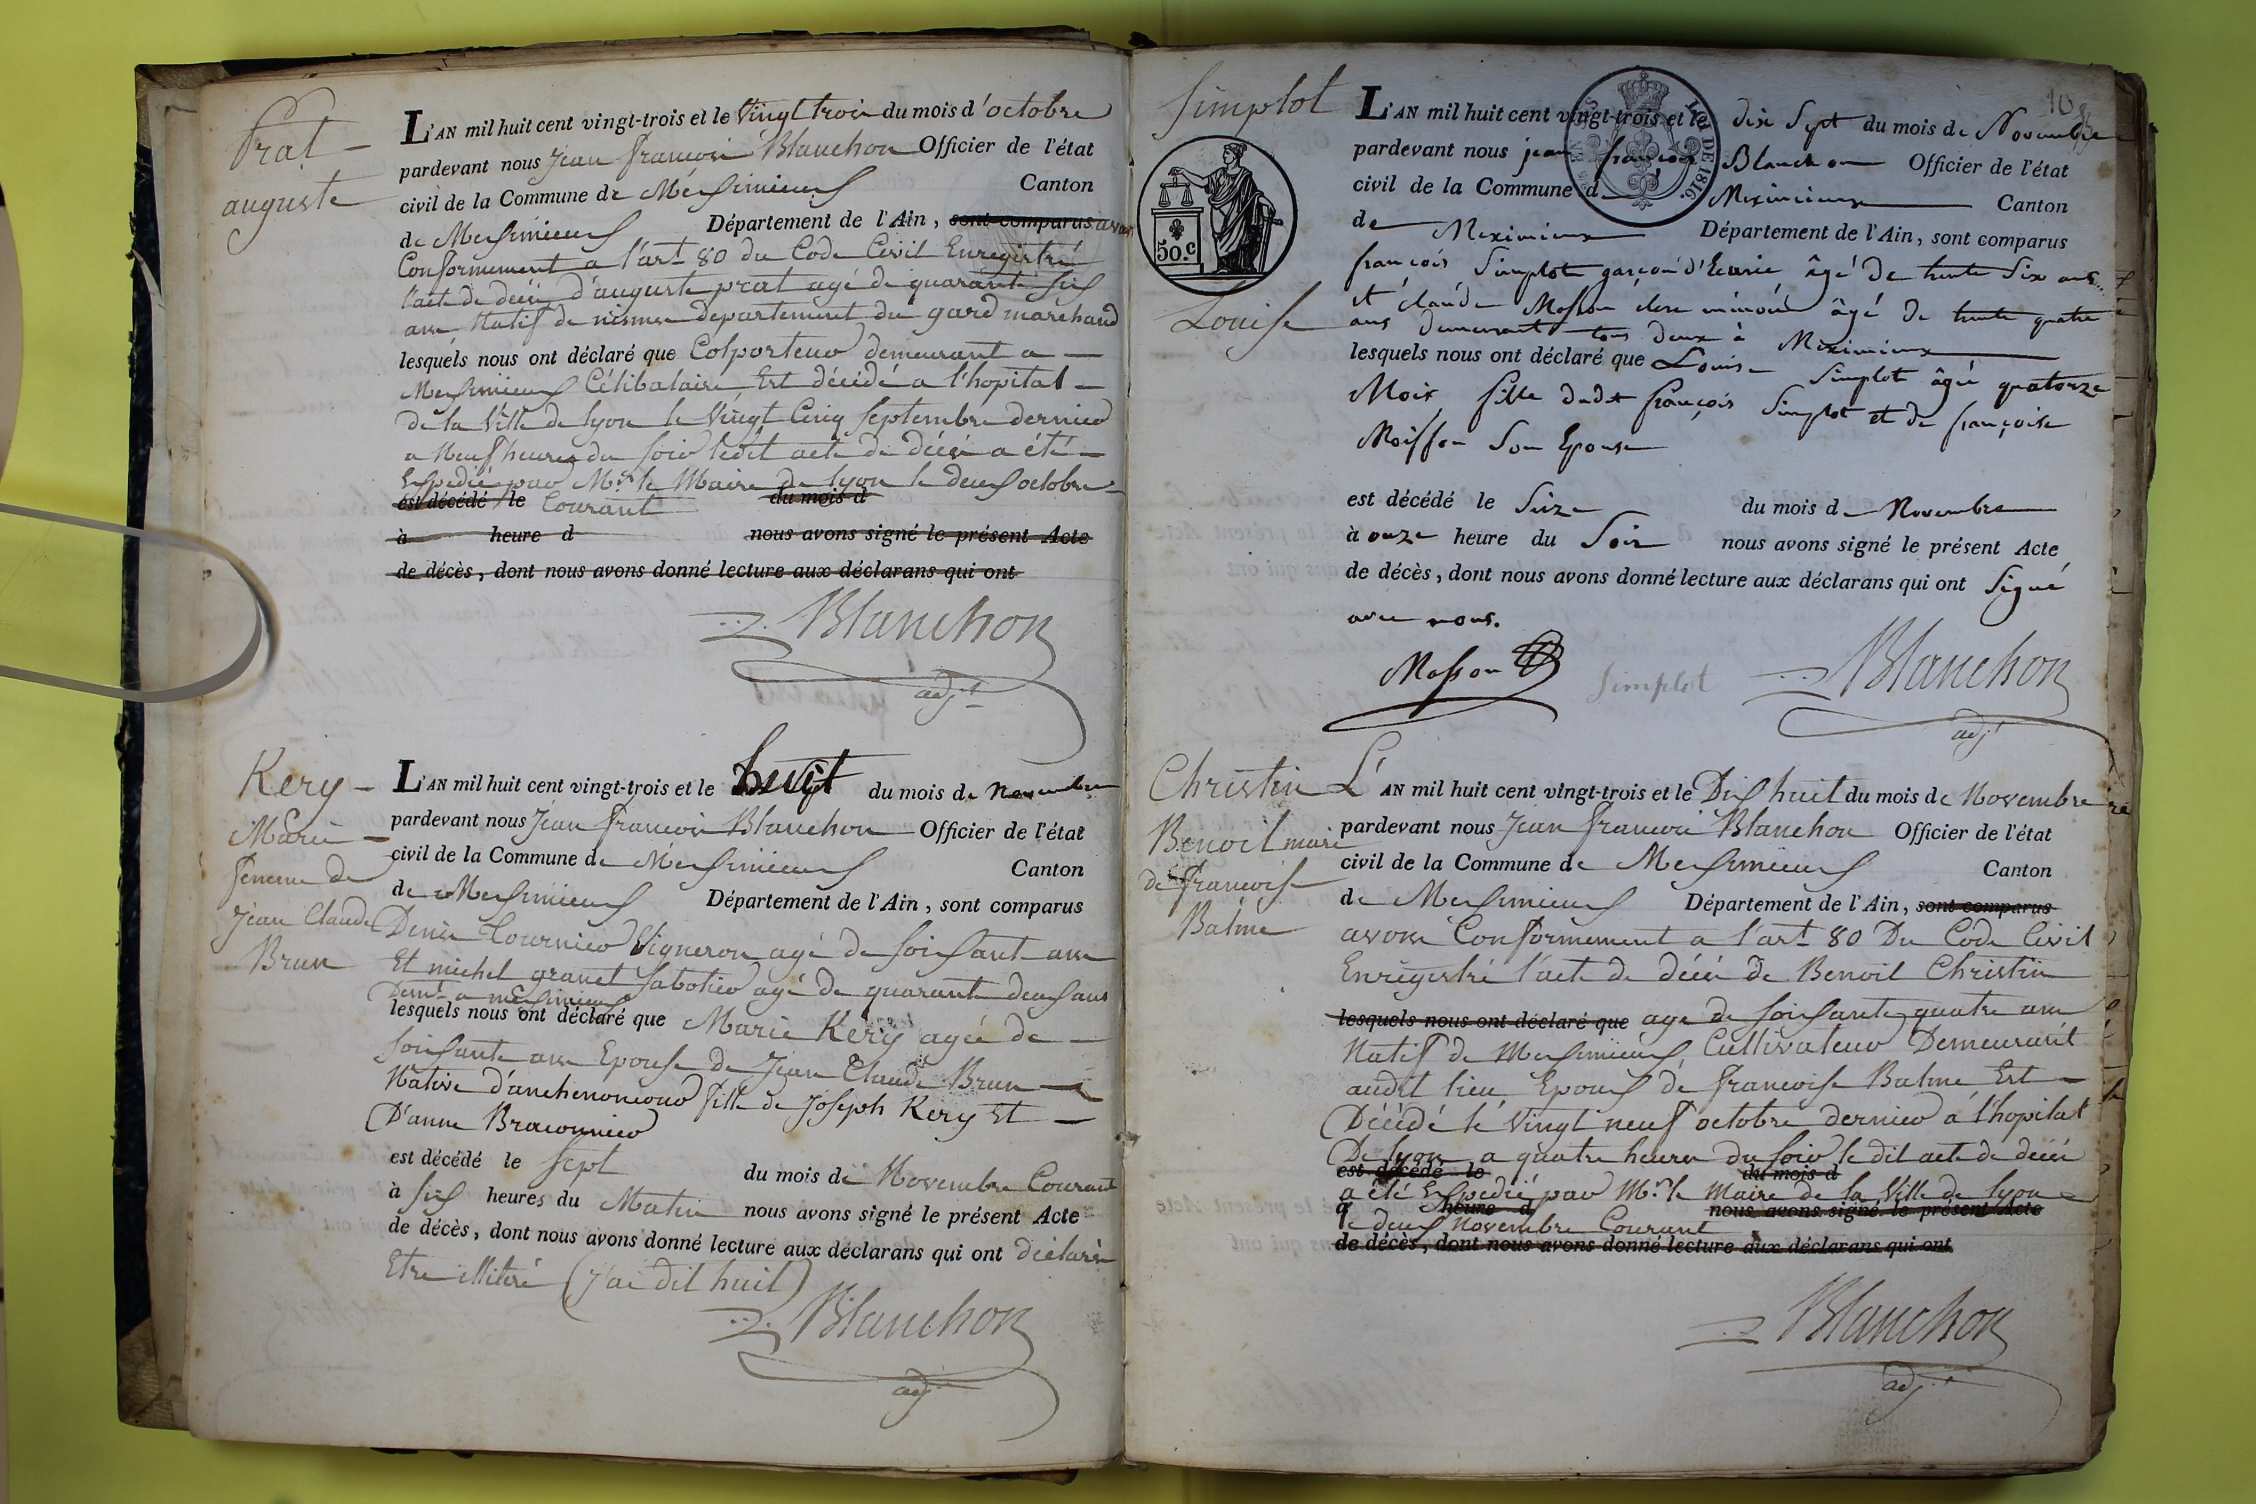 Prat
auguste
L'AN mil huit cent vingt-trois et le Vingt trois du mois d'octobre
pardevant nous Jean francois Blanchon Officier de l'état
civil de la Commune de Meximieux Canton
de Meximieux Département de l'Ain, sont comparus avons
Conformement a l'art 80 du Code Civil Enregistré
l'acte de décès d'auguste prat agé de quarante six
ans Natif de nismes departement du gard marchand
lesquels nous ont déclaré que Colporteur demeurant a
Meximieux Célibataire Est décédé a l'hopital
de la Ville de lyon le Vingt Cinq Septembre dernier
a Neuf heures du soir ledit acte de décès a été
Expedié par Mr. le Maire de lyon le deux octobre
est décédé le Courant du mois d
à heure d nous avons signé le présent Acte
de décès, dont nous avons donné lecture aux déclarans qui ont
Blanchon
adj.t
Kery
Marie
femme de
Jean Claude
Brun
L'AN mil huit cent vingt-trois et le huit du mois de Novembre
pardevant nous Jean francois Blanchon Officier de l'état
civil de la Commune de Meximieux Canton
de Meximieux Département de l'Ain, sont comparus
Denis Tournier Vigneron agé de soixante ans
Et michel granet Sabotier agé de quarante deux ans
Demt. a meximieux
lesquels nous ont déclaré que Marie Kery agée de
soixante ans Epouse de Jean Claude Brun
Native fille de Joseph Kery Et
D'anne Braconnier
est décédé le sept du mois de Novembre Courant
à six heures du Matin nous avons signé le présent Acte
de décès, dont nous avons donné lecture aux déclarans qui ont déclaré
Etre illiteré (j'ai dit huit)
Blanchon
adj.t
10
Simplot
Louise
50.C
LOI DE 1816.
L'AN mil huit cent vingt-trois et le dix Sept du mois de Novembre
pardevant nous jean françois Blanchon Officier de l'état
civil de la Commune d Meximieux Canton
de Meximieux Département de l'Ain, sont comparus
françois Simplot garçon d'Ecurie âgé de trente Six ans
et claude Masson clerc minoré âgé de trente quatre
ans demeurant tous deux à Meximieux
lesquels nous ont déclaré que Louise Simplot âgée quatorze
Mois fille dudit françois Simplot et de françoise
Moisson Son Epouse
est décédé le Seize du mois de Novembre
à onze heure du Soir nous avons signé le présent Acte
de décès, dont nous avons donné lecture aux déclarans qui ont Signé
avec nous.
Masson
Simplot
Blanchon
adjt
Christin
Benoit mari
de francoise
Balme
L'AN mil huit cent vingt-trois et le Dix huit du mois de Novembre
pardevant nous Jean francois Blanchon Officier de l'état
civil de la Commune de Meximieux Canton
de Meximieux Département de l'Ain, sont comparus
avons Conformement a l'art 80 Du Code Civil
Enregistré l'acte de décès de Benoit Christin
lesquels nous ont déclaré que age de soixante quatre ans
Natif de Meximieux Cultivateur Demeurant
audit lieu Epoux de francoise Balme Est
Décédé le Vingt neuf octobre dernier a l'hopital
De lyon a quatre heures du soir le dit acte de décès
est décédé le du mois d
a été Expedié par Mr. le Maire de la Ville de lyon
à heure d nous avons signé le présent Acte
le deux Novembre Courant
de décès, dont nous avons donné lecture aux déclarans qui ont
Blanchon
adj.t